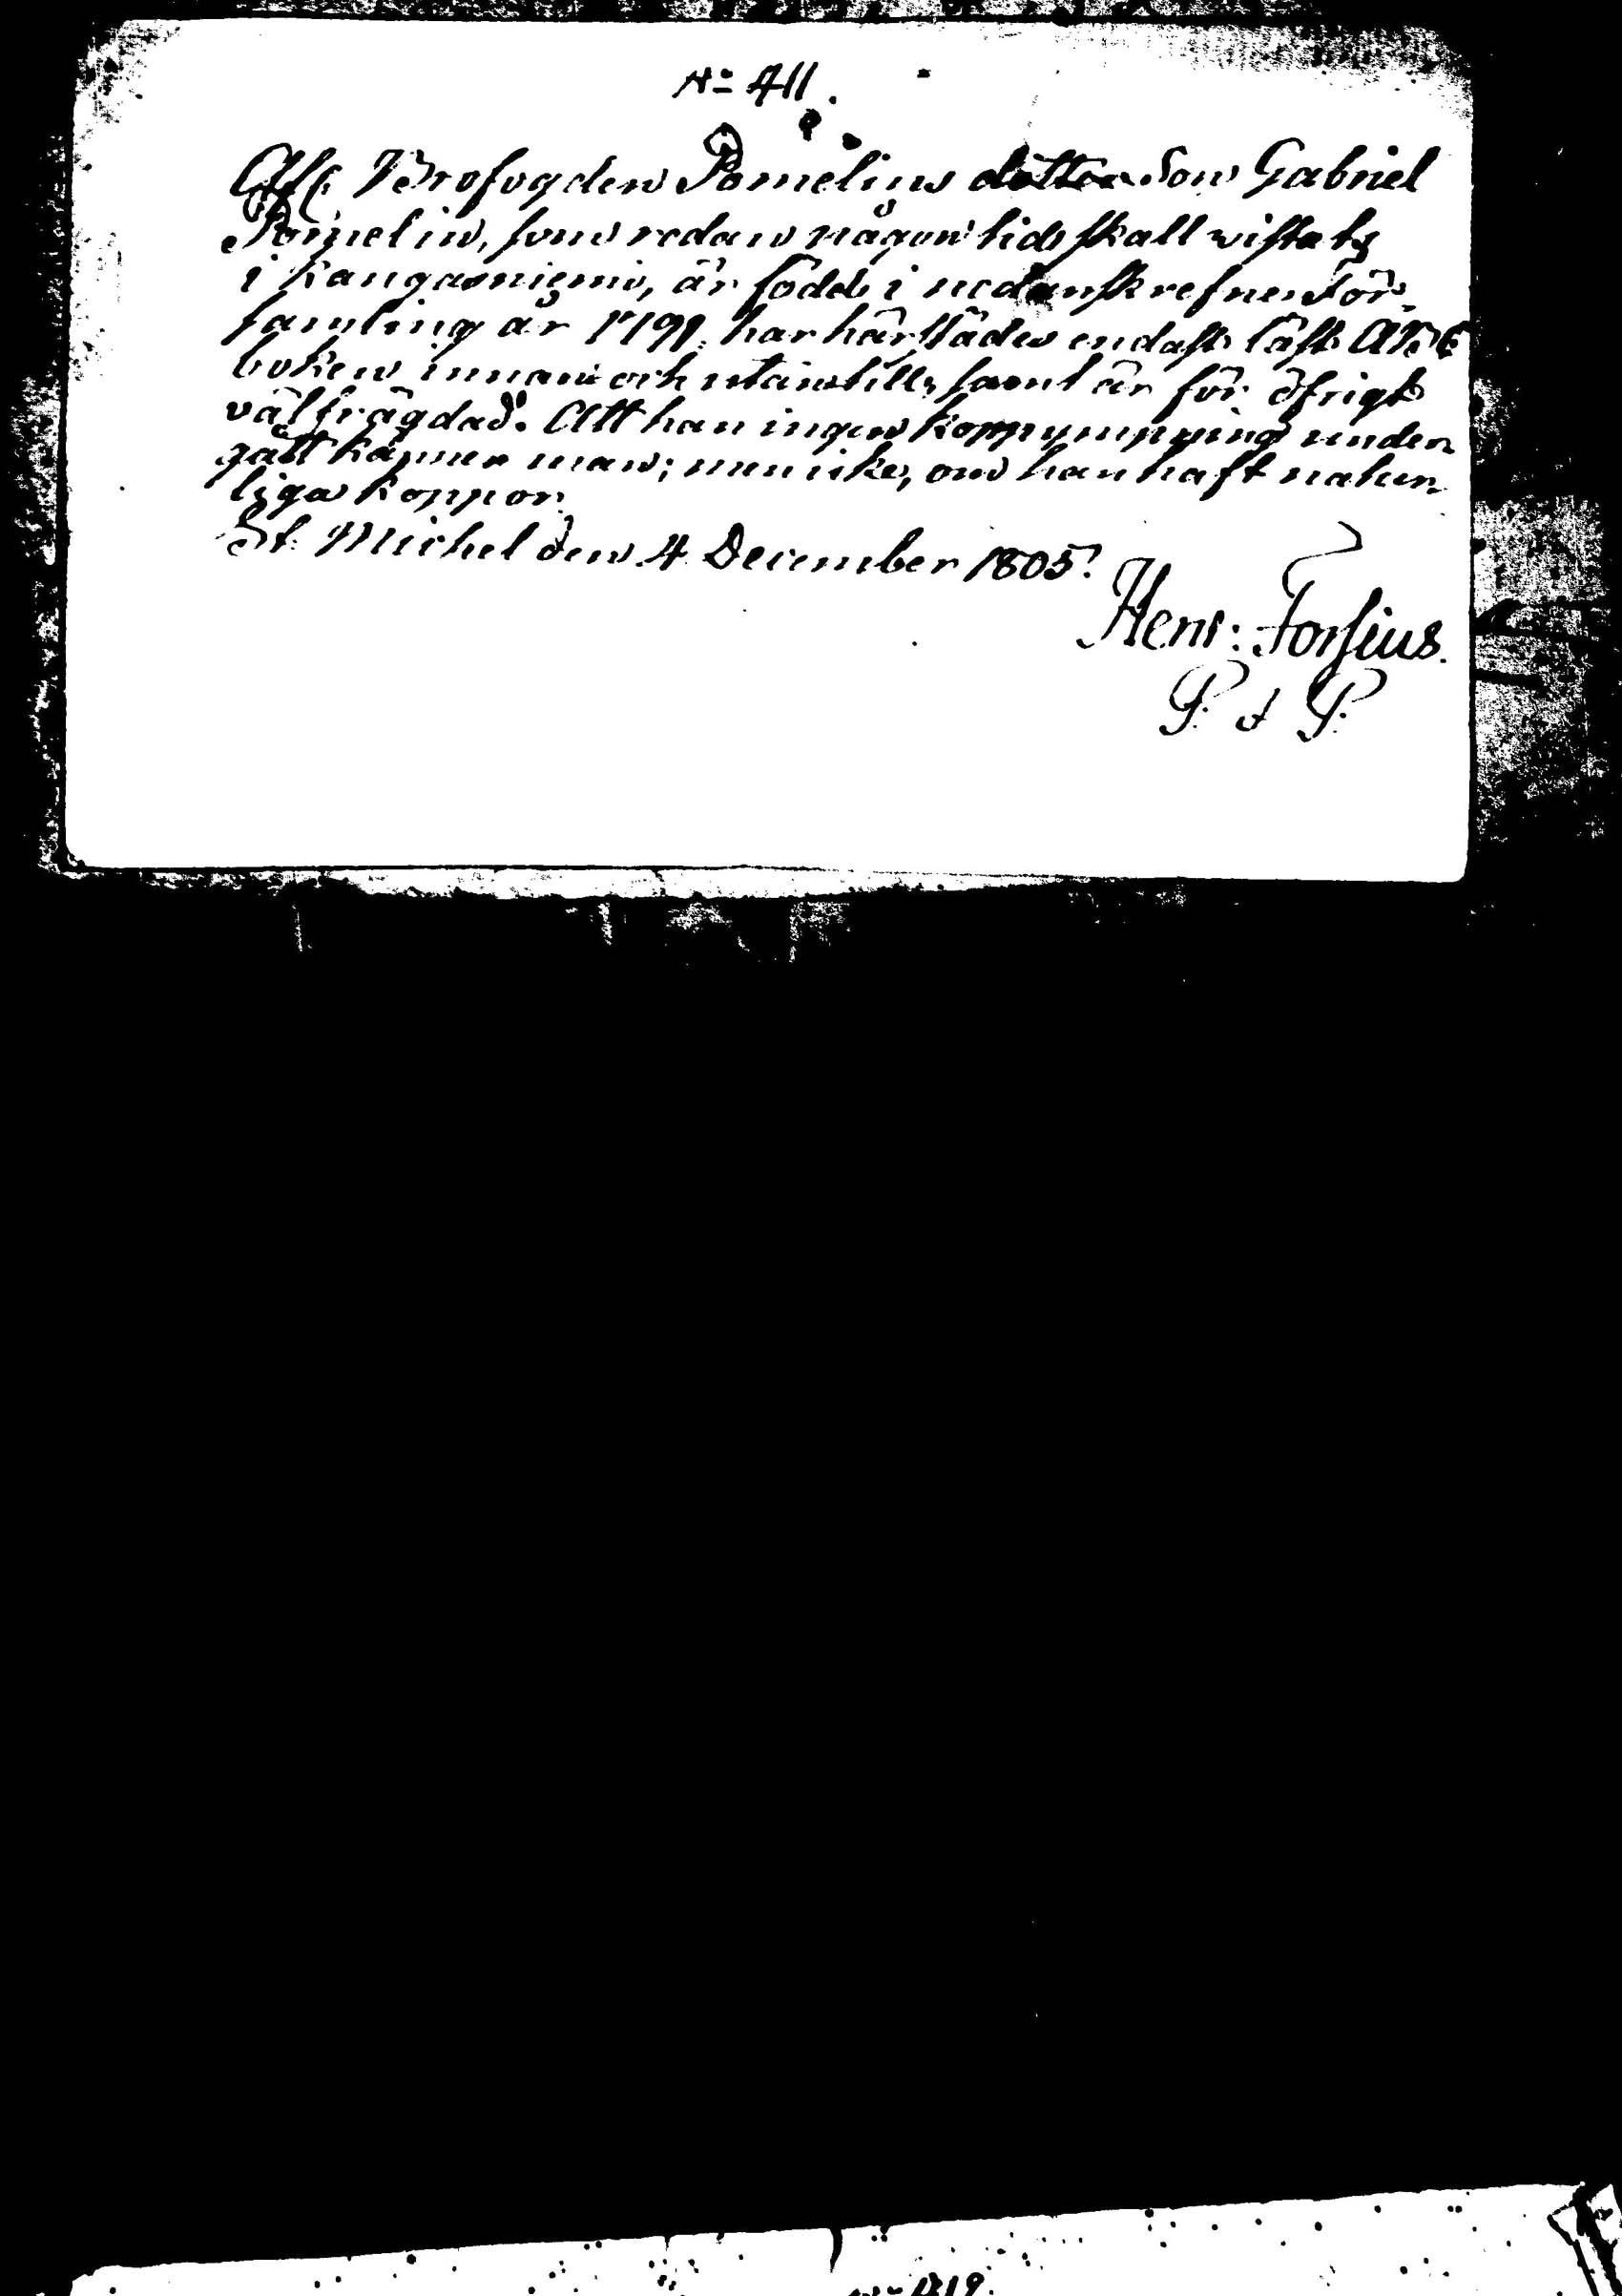 No 411.
Afl. Brofogden Pomelius dotter Son Gabriel
Pomelin, som redan någon tid skall wistats
i Kangasniemi, är född i nedanskrefne För-
samling år 1791, har härstädes endast läst ABC
boken innan och utantill, samt är för öfrigt
välfrägdad. Att han ingen Koppympning under-
gått känner man; men icke, om han haft natur-
liga Koppor.
St. Michel den 4 December 1805.
Henr: Forsius.
P. t P.